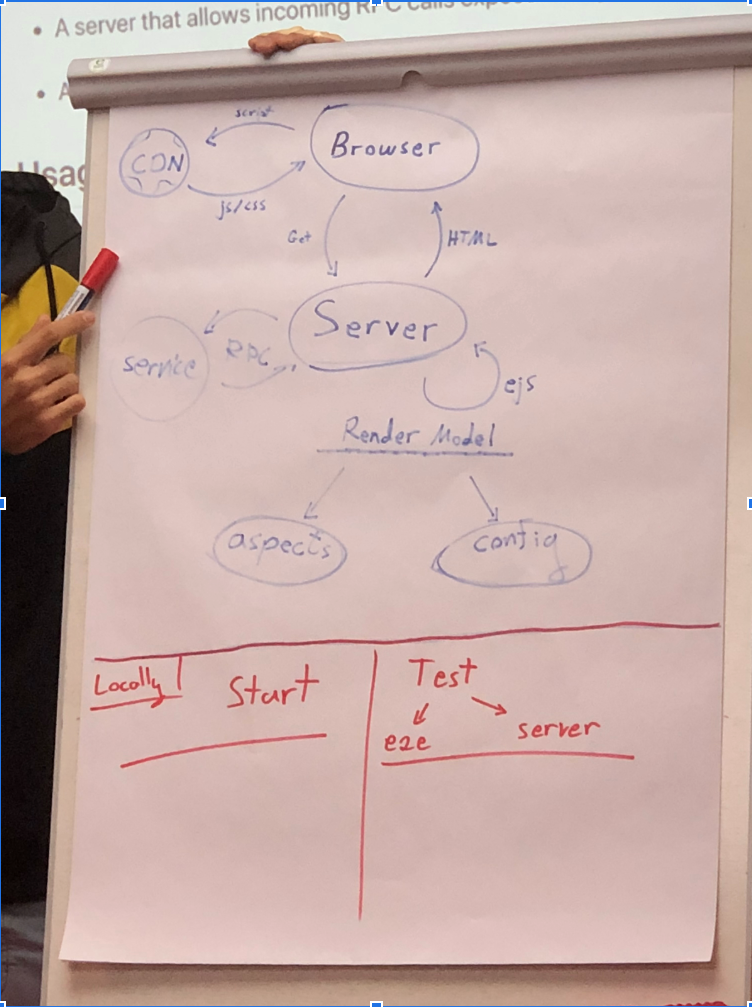 A server that allows incoming RPC calls
A
Usag
script
Browser
CDN
js/css
Get
HTML
Server
service
RPC
ejs
Render Model
aspects
config
Locally
Start
Test
e2e
server